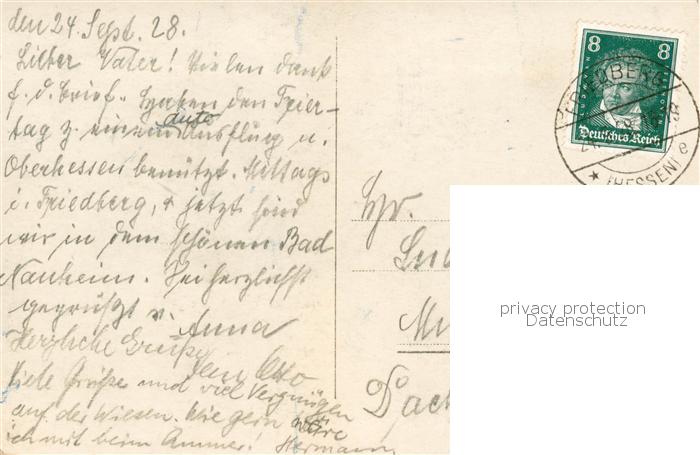 den 24. Sept. 28.
Lieber Vater! Vielen dank
f. d. Brief. Haben den Feier-
tag z. einem Auto Ausflug n.
Oberhessen benützt. Mittags
i. Friedberg, & jetzt sind
wir in dem schönen Bad
Nauheim. Sei herzlichst
gegrüßt v. Anna
Herzliche Grüße
Dein Otto
Viele Grüße und viel Vergnügen
auf der Wiesen. Wie gern wäre
ich mit beim Ammer! Hermann
8 8
LUDWIG
Deutsches Reich
(HESSEN) e
Hr.
Lud
Mü
Dach
privacy protection
Datenschutz